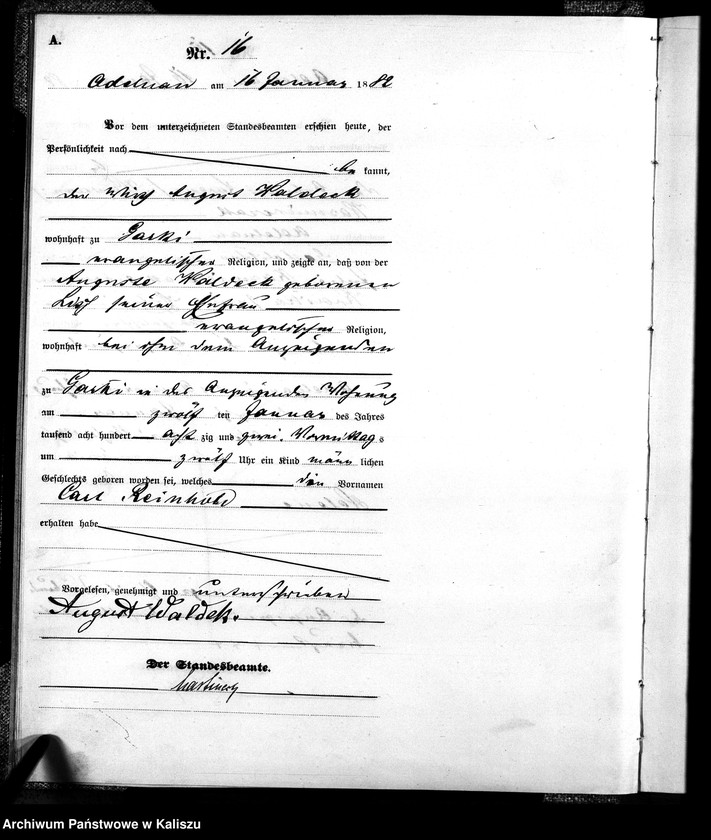 A.
Nr. 16
Adelnau am 16 Januar 1882
Vor dem unterzeichneten Standesbeamten erschien heute, der
Persönlichkeit nach
be kannt,
der Wirth August Waldeck
wohnhaft zu Garki
evangelischer Religion, und zeigte an, daß von der
Auguste Waldeck geborenen
seiner Ehefrau
evangelischer Religion,
wohnhaft bei ihm dem Anzeigenden
zu Garki in des Anzeigenden Wohnung
am zwölf ten Januar des Jahres
tausend acht hundert acht zig und zwei, Vormittag s
um zwölf Uhr ein Kind männ lichen
Geschlechts geboren worden sei, welches den Vornamen
Carl Reinhold
erhalten habe
Vorgelesen, genehmigt und unterschrieben
August Waldek.
Der Standesbeamte.
Archiwum Państwowe w Kaliszu